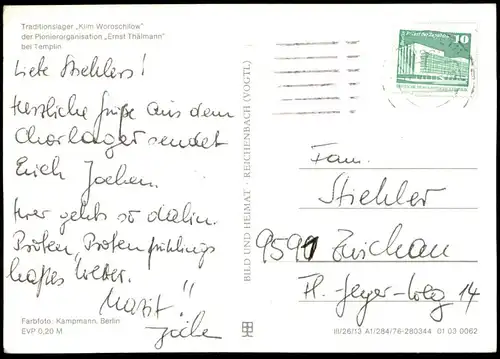 Traditionslager „Klim Woroschilow"
der Pionierorganisation „Ernst Thälmann"
bei Templin
Liebe Stiehlers!
Herzliche Grüße aus dem
Chorlager sendet
Euch Jochen.
Hier gehts so dahin.
Proben, Proben frühlings
haftes Wetter.
Farbfoto: Kampmann, Berlin
EVP 0,20 M
BILD UND HEIMAT · REICHENBACH (VOGTL)
10
Fam.
Stiehler
9591 Zwickau
Fl.-Geyer-Weg 14
III/26/13 A1/284/76-280344 01 03 0062